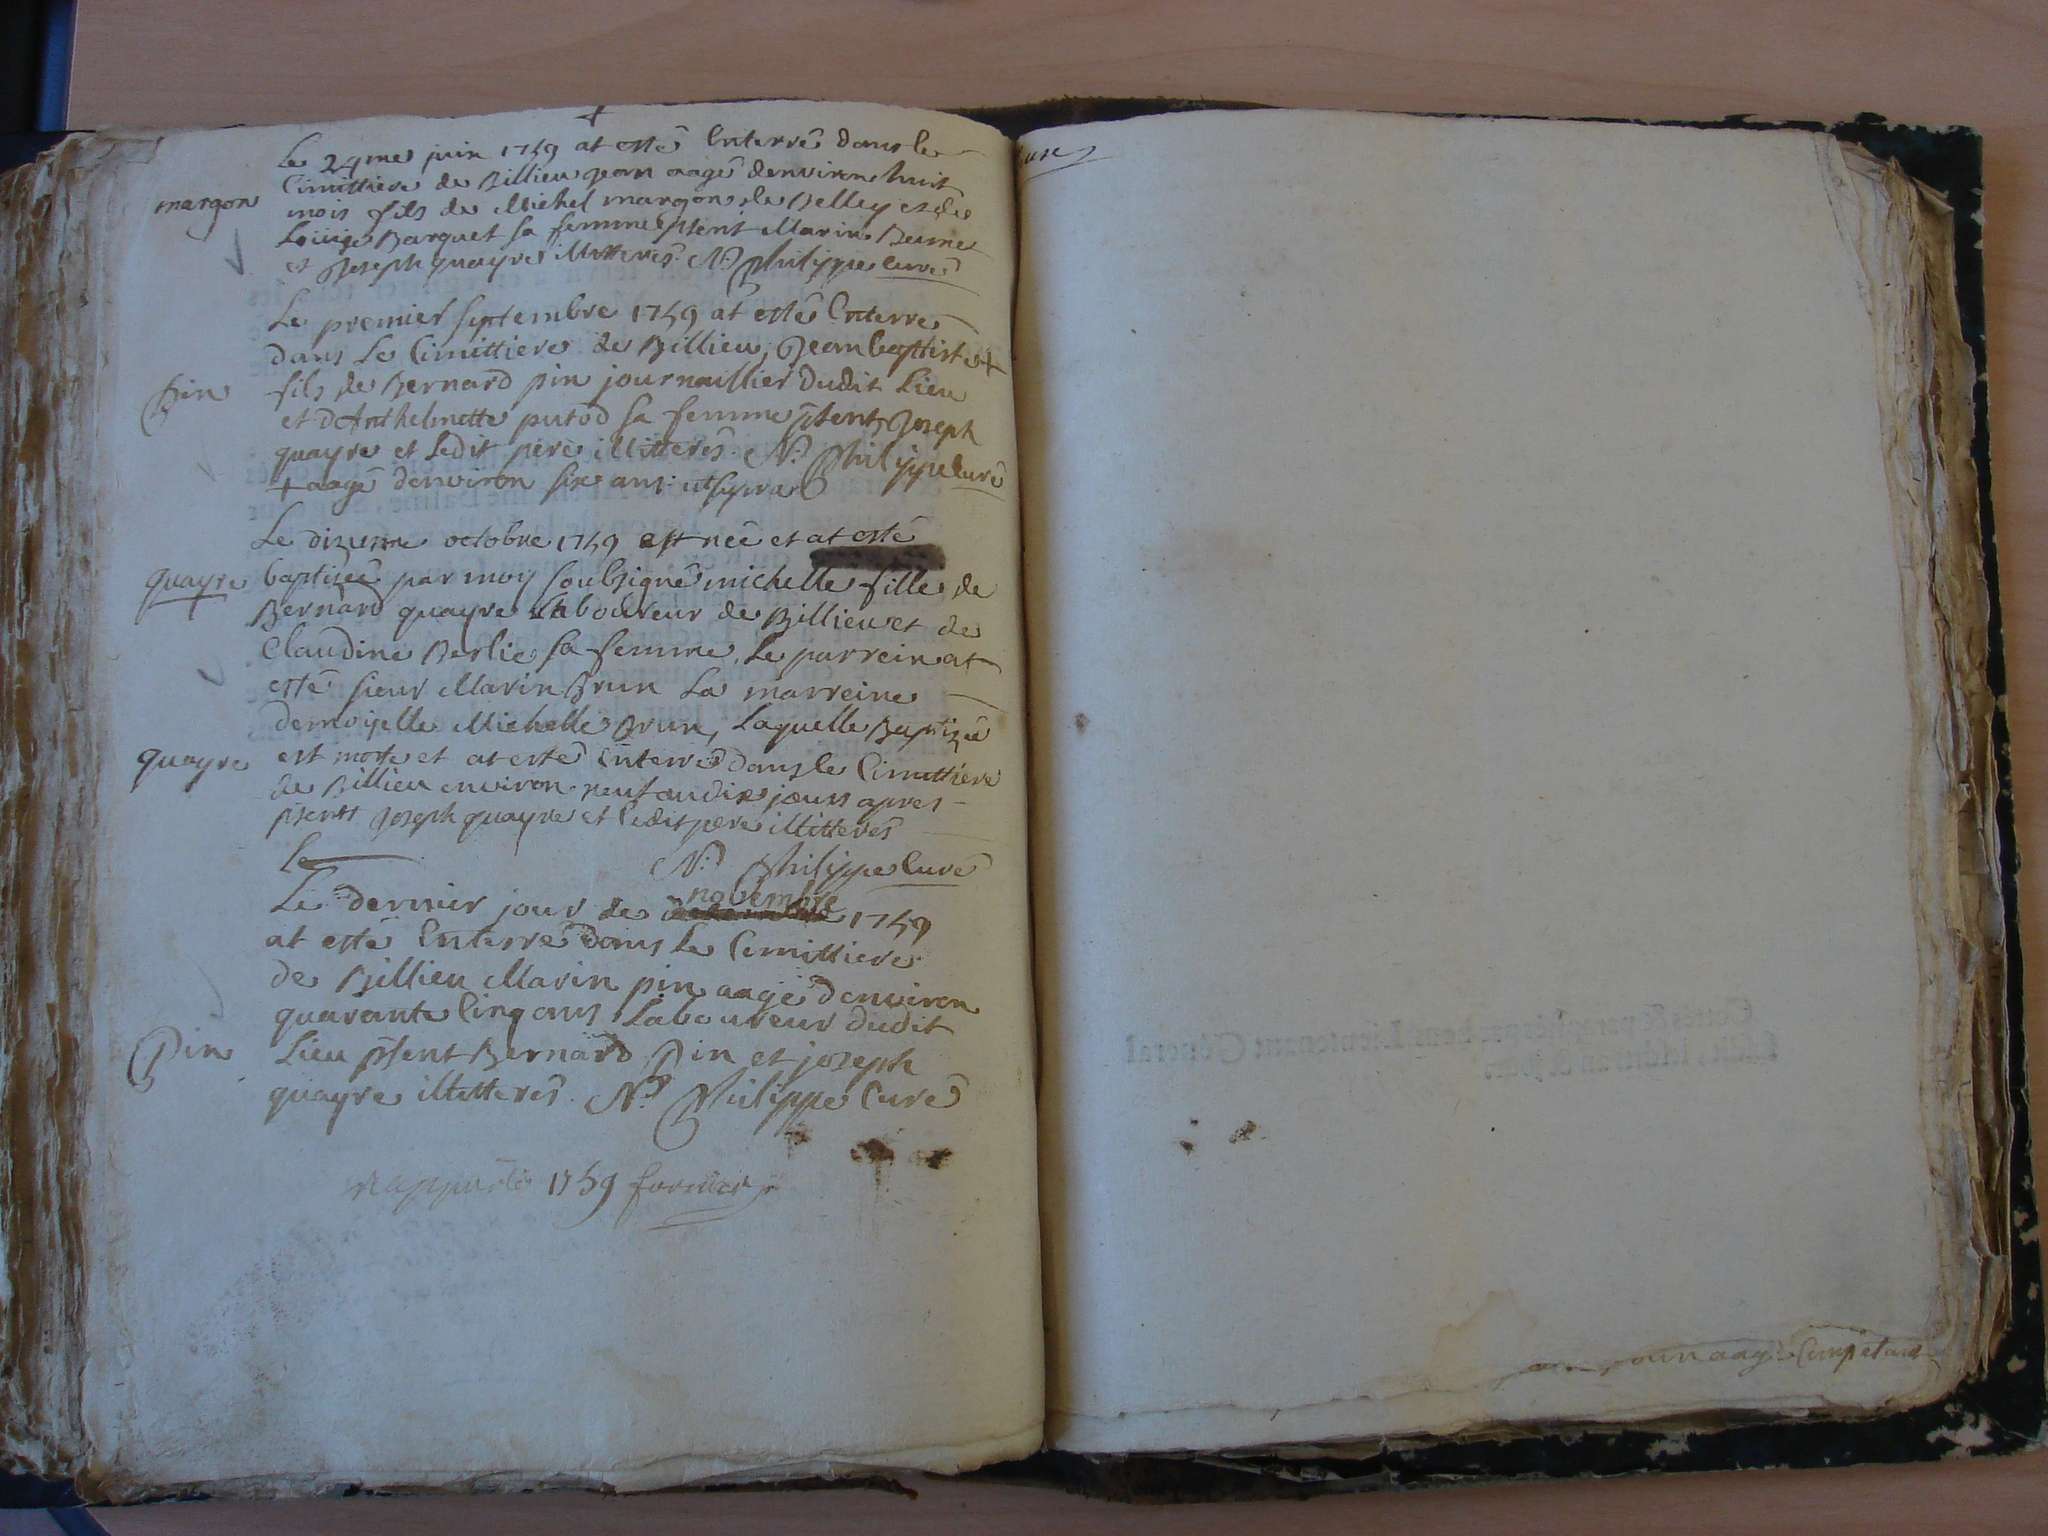 Le 24me juin 1759 at esté Enterré dans le
Cimittiere de Billieu jean aagé denviron huit
margon
mois fils de Michel margon de Belley et de
Loüise Barquet sa femme pñent Marin Beme
et Joseph quayre illitterés. N. Philippe Curé
Le premier septembre 1759 at esté Enterré
dans Le Cimittiere de Billieu, Jean baptiste +
pin
fils de Bernard pin journaillier dudit Lieu
et d'Anthelmette putod sa femme pñents Joseph
quayre et Ledit pere illitterés. N. Philippe Curé
+ aagé denviron six ans ut supra
Le dizieme octobre 1759 est neé et at esté
quayre
baptizeé par moy soubsigné michelle fille de
Bernard quayre Laboureur de Billieu et de
Claudine Berlie sa femme, Le parrein at
esté sieur Marin Brun La marreine
demoiselle Michelle Brun, Laquelle Baptizeé
quayre
est morte et at esté Enterré dans le Cimittiere
de Billieu environ neuf ou dix jours apres
pñentt Joseph quayre et Ledit pere illitterés
Le
N. Philippe Curé
Le dernier jour de novembre 1759
at esté Enterré dans Le Cemittiere
de Billieu Marin pin aagé d'environ
quarante Cinq ans Laboureur dudit
Pin
Lieu pñent Bernard Pin et joseph
quayre illitterés. N. Philippe Curé
1759
Lieutenant Général